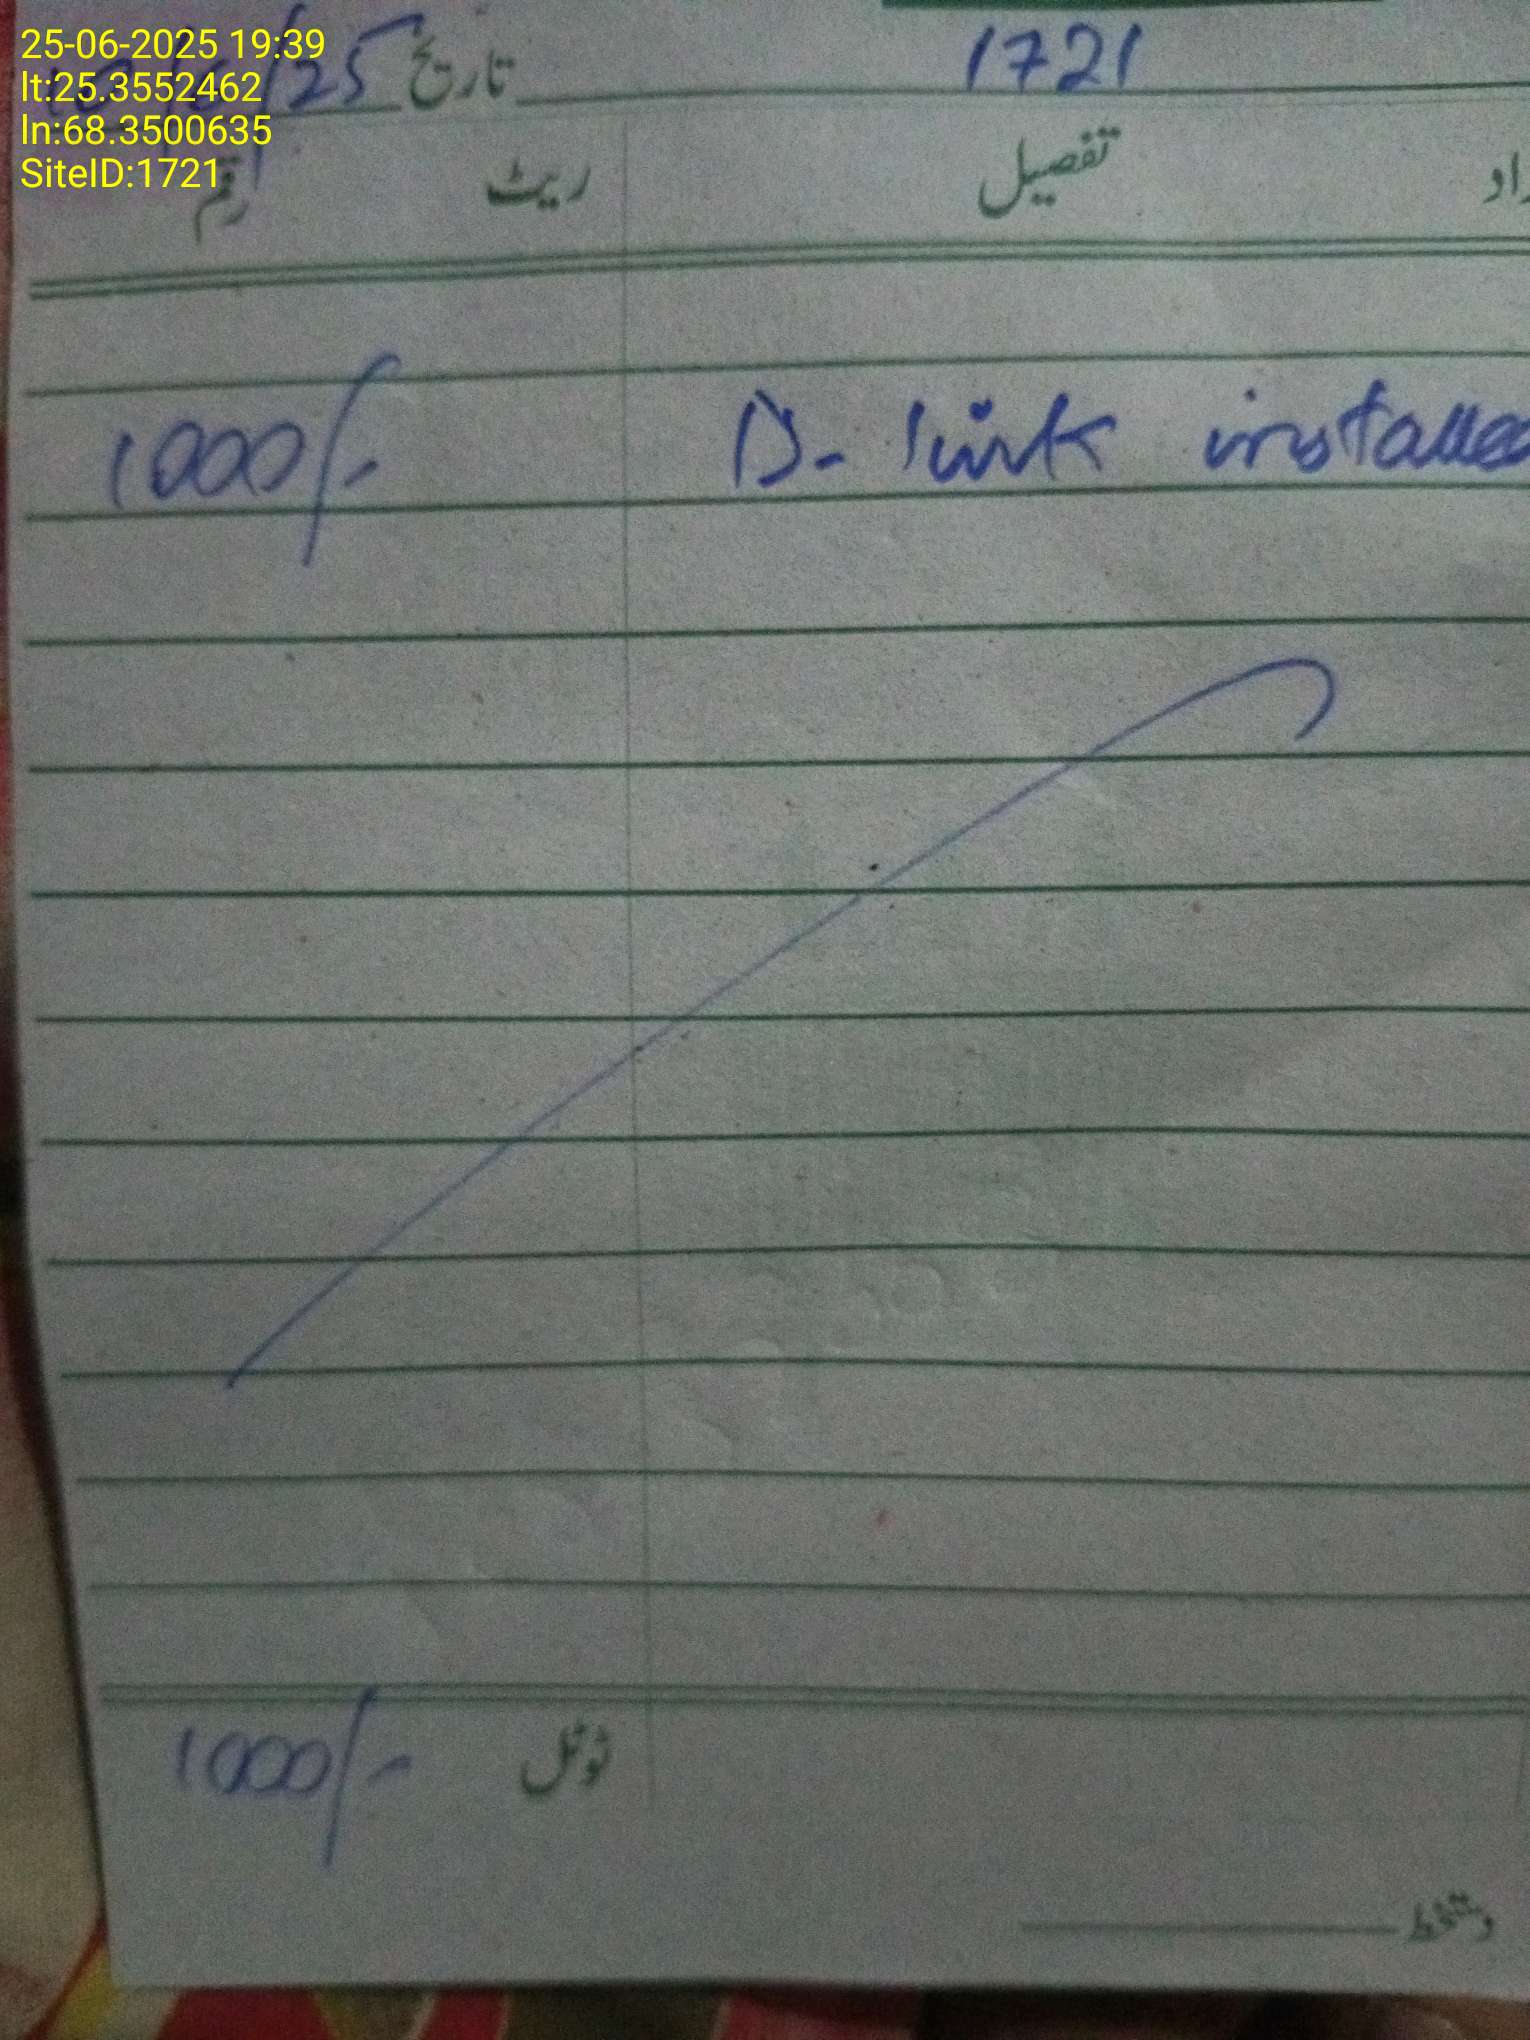 25-06-2025 19:39
lt:25.3552462
ln:68.3500635
SiteID:1721
1721 تاریخ /25
تفصیل ریٹ رقم
D-link installed 1000/-
ٹوٹل 1000/-
دستخط